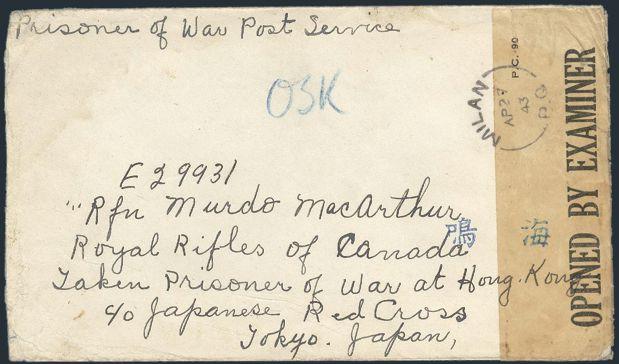 Prisoner of War Post Service
OSK
P.C. 90
MILAN
AP 27
43
P.Q
OPENED BY EXAMINER
E29931
Rfn Murdo MacArthur
Royal Rifles of Canada
鳴海
Taken Prisoner of War at Hong. Kong
c/o Japanese Red Cross
Tokyo. Japan,